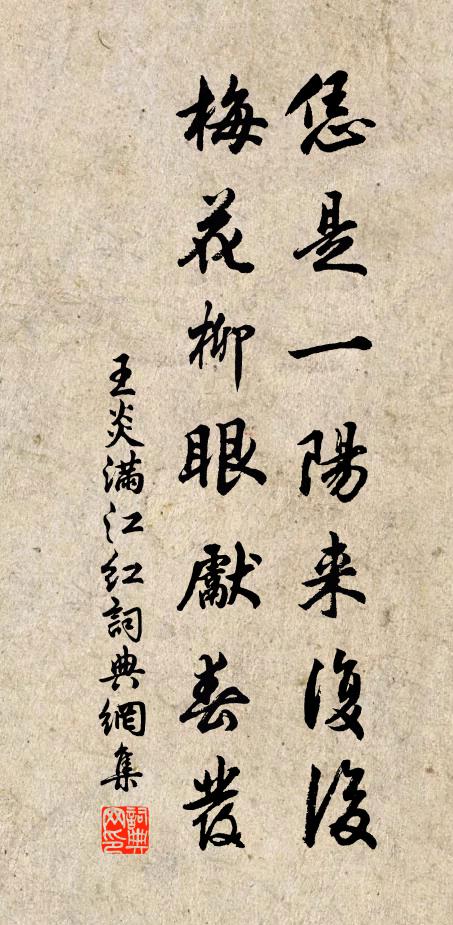 恁是一陽来復後
梅花柳眼獻春發
王炎滿江紅詞典網集
詞典网印